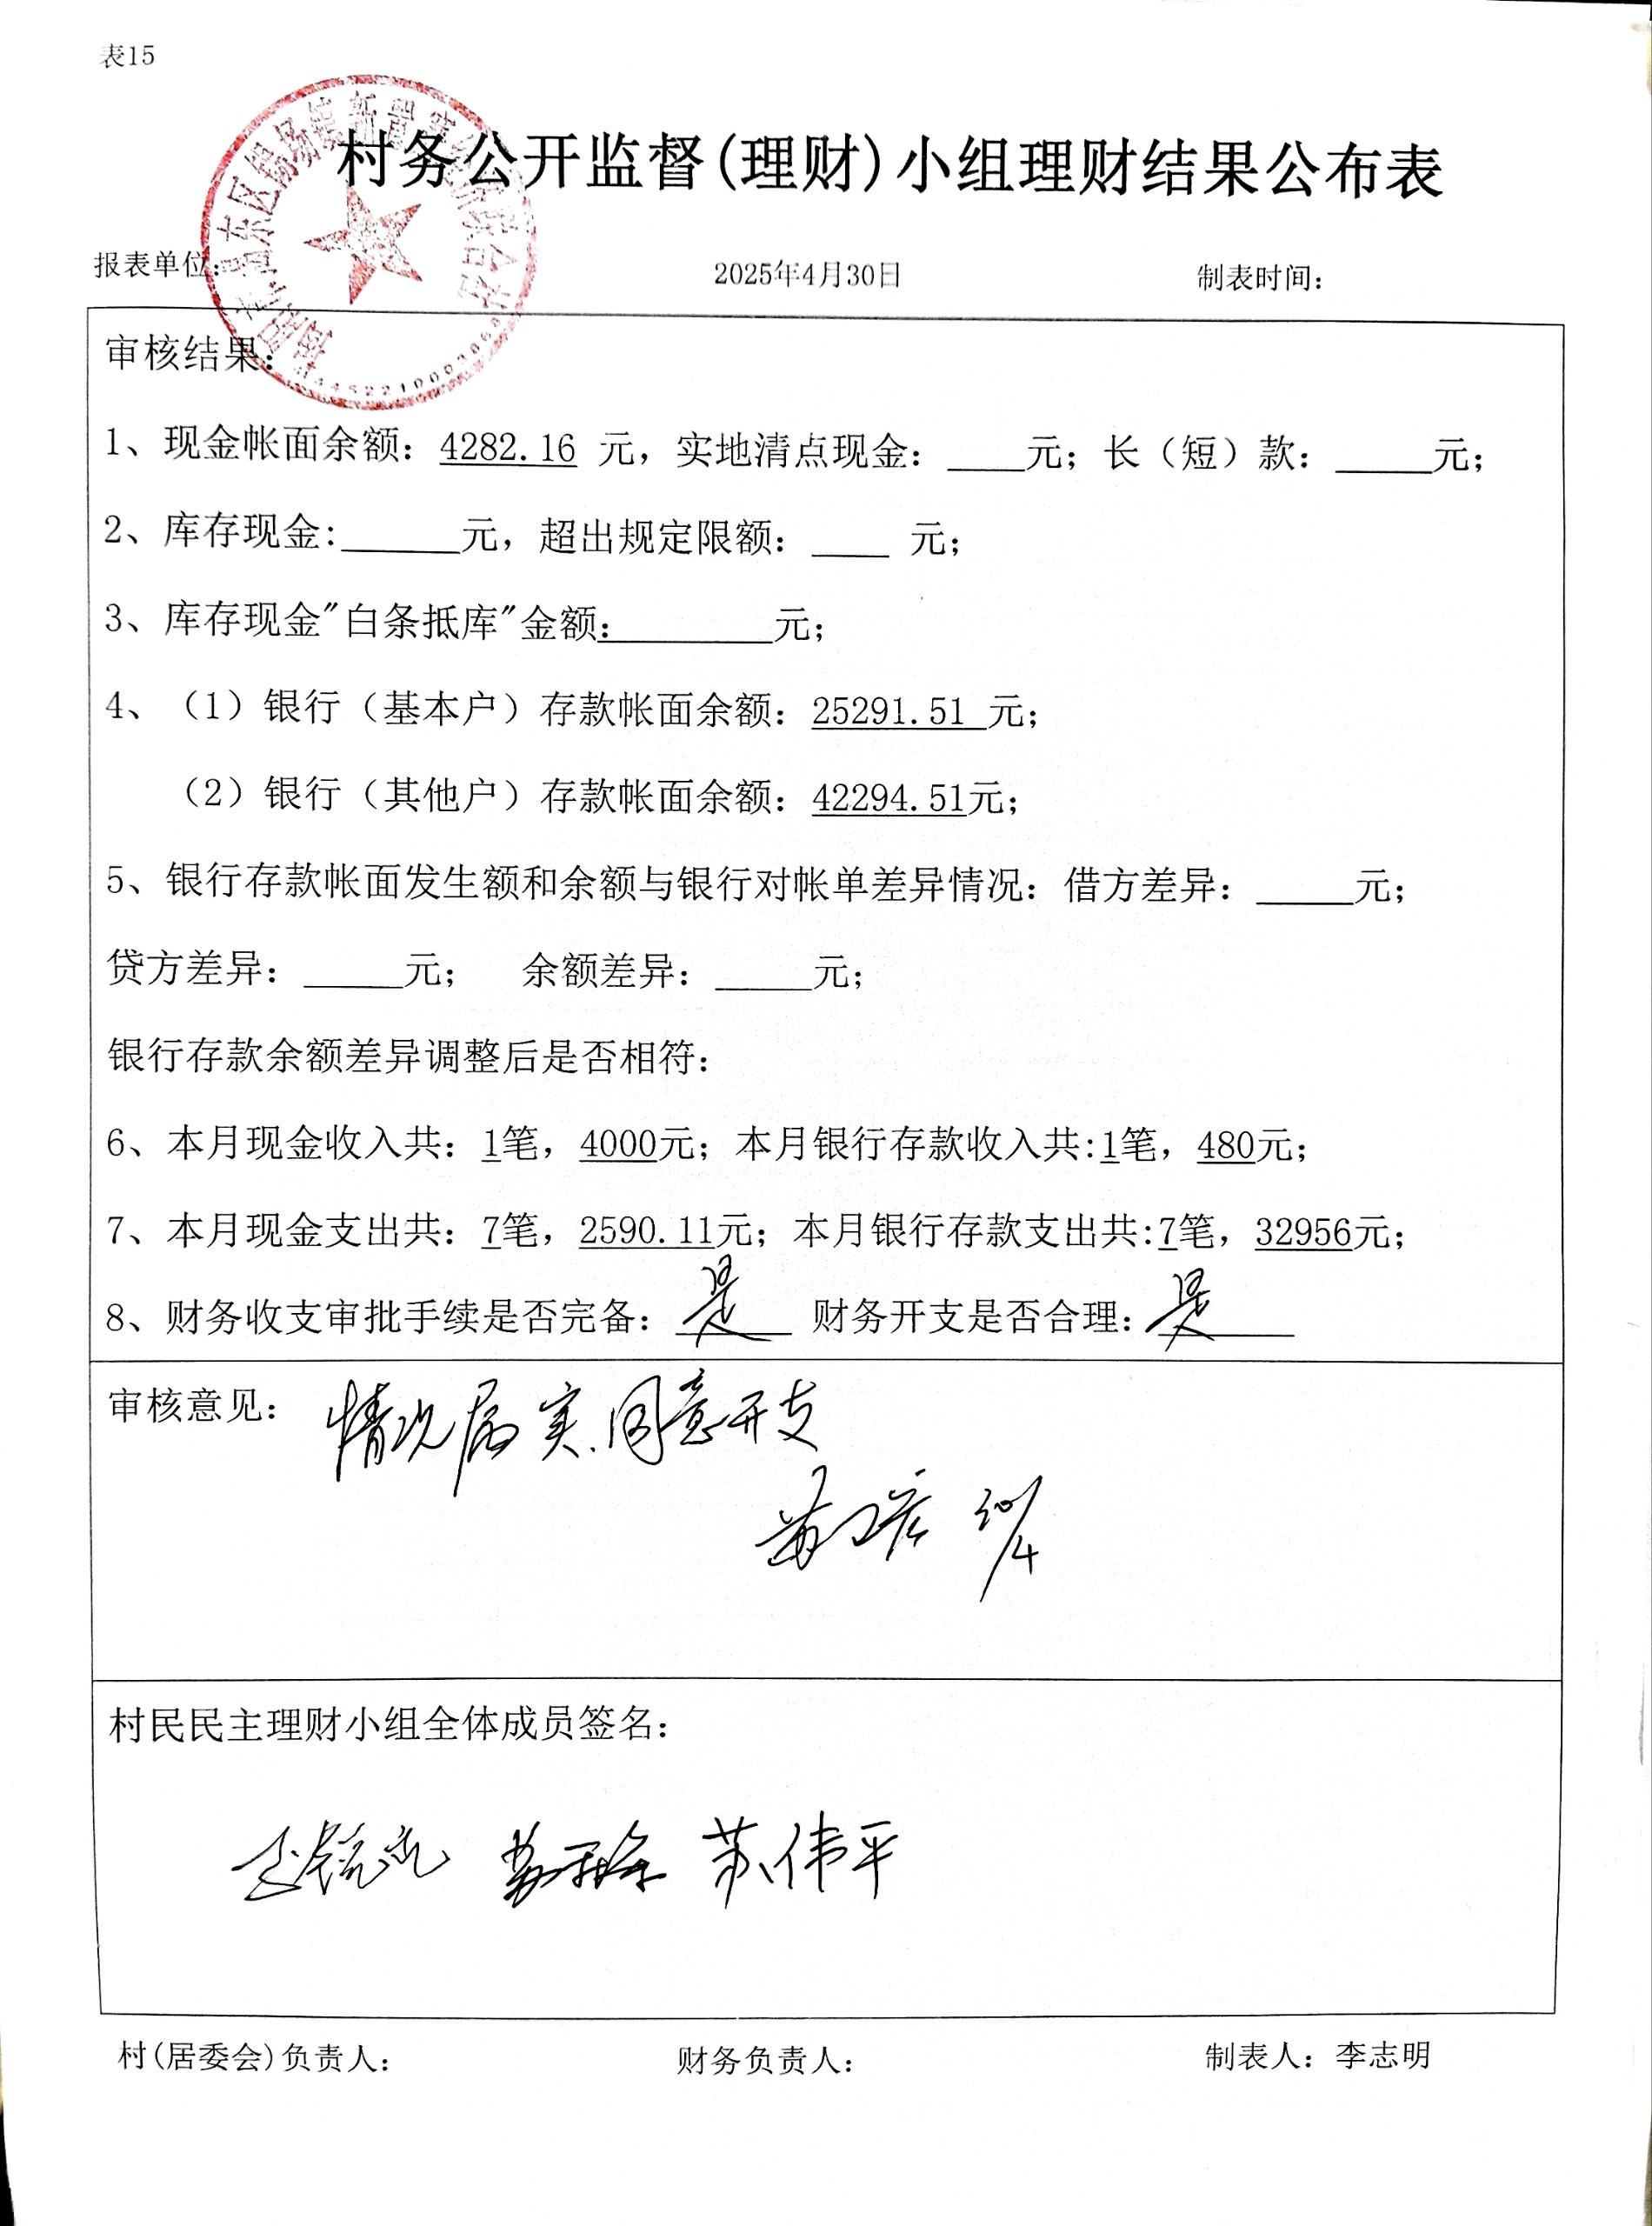 表15
村务公开监督(理财)小组理财结果公布表
报表单位: 2025年4月30日 制表时间:
审核结果:
1、现金帐面余额: 4282.16 元, 实地清点现金: ____元; 长（短）款: _____元;
2、库存现金:______元, 超出规定限额: ____ 元;
3、库存现金"白条抵库"金额:________元;
4、（1）银行（基本户）存款帐面余额: 25291.51 元;
（2）银行（其他户）存款帐面余额: 42294.51元;
5、银行存款帐面发生额和余额与银行对帐单差异情况: 借方差异: _____元;
贷方差异: _____元; 余额差异: _____元;
银行存款余额差异调整后是否相符:
6、本月现金收入共: 1笔, 4000元; 本月银行存款收入共:1笔, 480元;
7、本月现金支出共: 7笔, 2590.11元; 本月银行存款支出共:7笔, 32956元;
8、财务收支审批手续是否完备: 是 财务开支是否合理: 是
审核意见: 情况属实.同意开支
30/4
村民民主理财小组全体成员签名:
苏伟平
村(居委会)负责人: 财务负责人: 制表人: 李志明